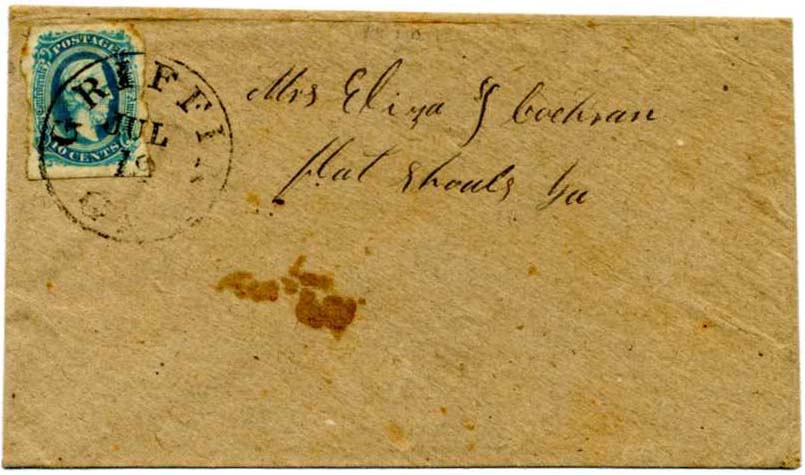 POSTAGE
10 CENTS
GRIFFIN
JUL
GA
Mrs Eliza J Cochran
flat shouls Ga